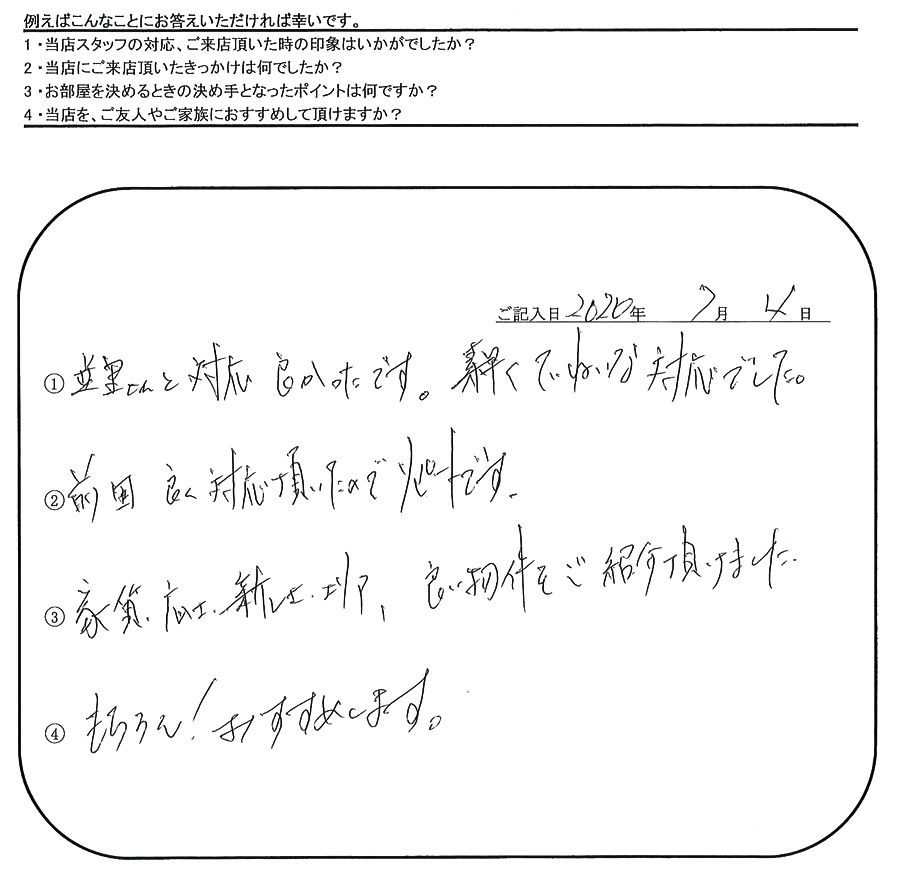 例えばこんなことにお答えいただければ幸いです。
1・当店スタッフの対応、ご来店頂いた時の印象はいかがでしたか?
2・当店にご来店頂いたきっかけは何でしたか?
3・お部屋を決めるときの決め手となったポイントは何ですか?
4・当店を、ご友人やご家族におすすめして頂けますか?
ご記入日 2020年 7月 4日
① 対応 良かったです。素早くていねいな対応でした。
② 前回 良く対応頂いたのでリピートです。
③ 家賃、広さ、新しさ、エリア、良い物件をご紹介頂けました。
④ もちろん!おすすめします。